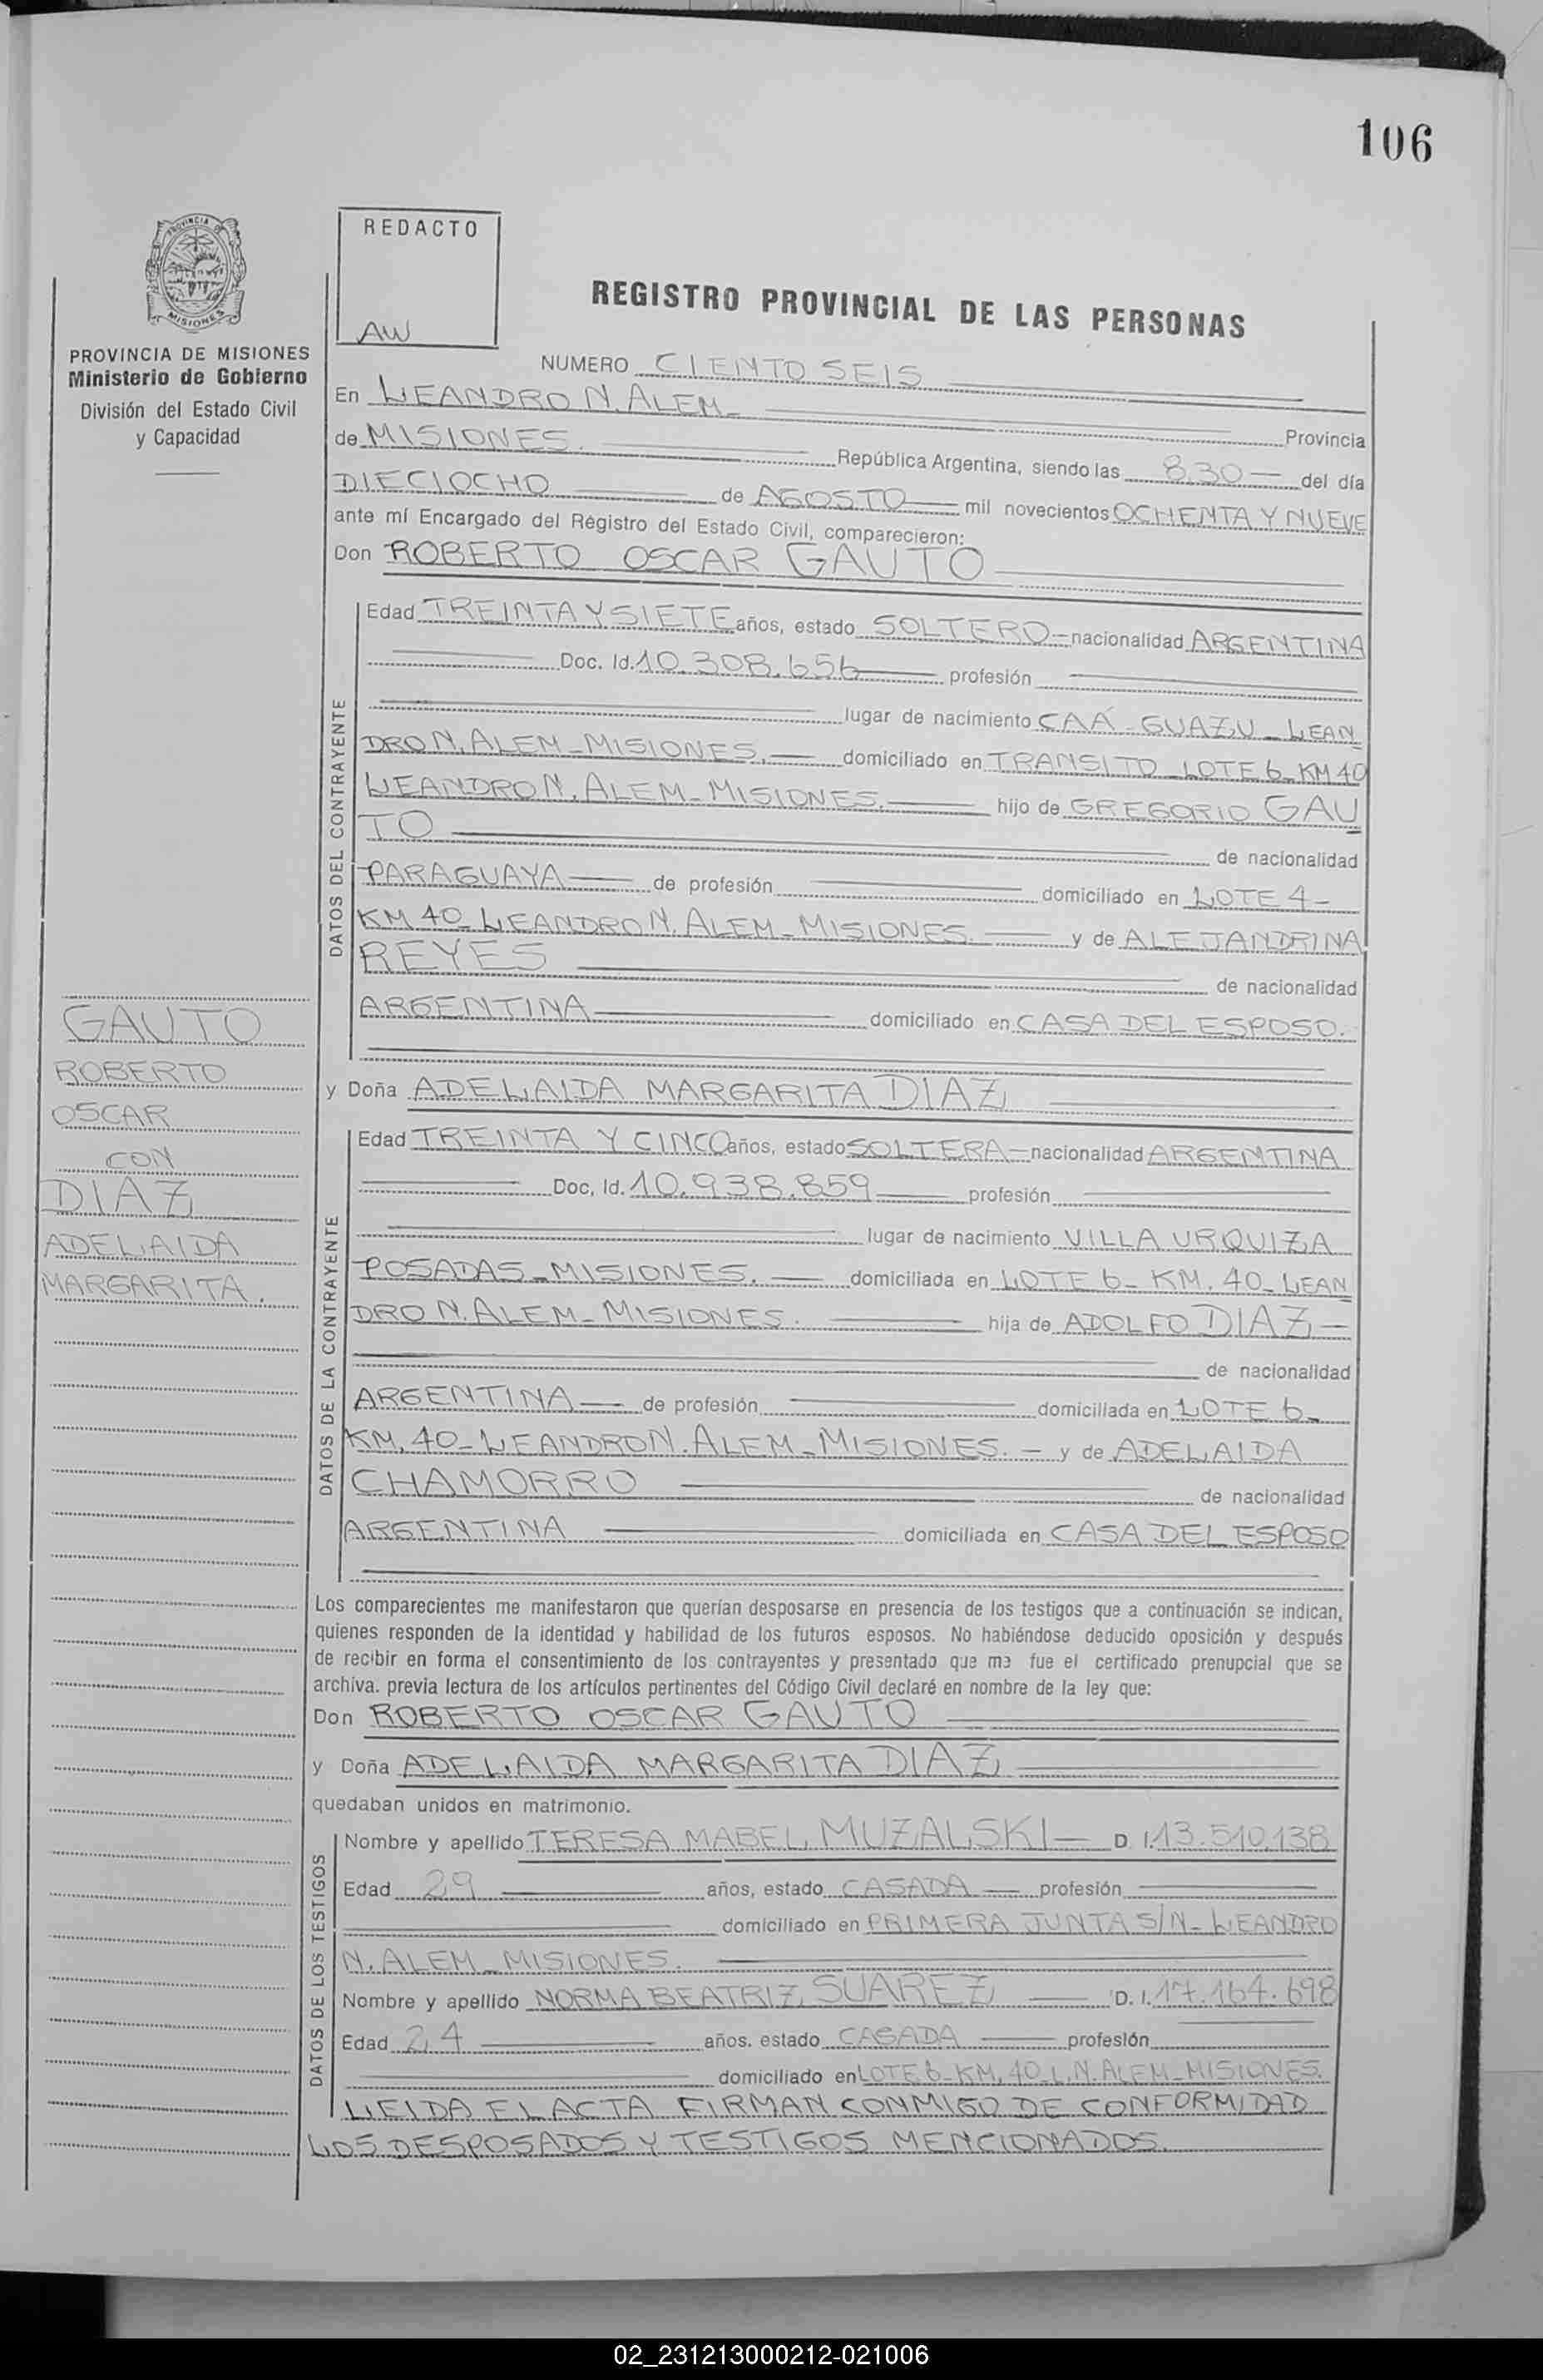 106
REDACTO
AW
PROVINCIA DE
MISIONES
PROVINCIA DE MISIONES
Ministerio de Gobierno
División del Estado Civil
y Capacidad
REGISTRO PROVINCIAL DE LAS PERSONAS
NUMERO CIENTO SEIS
En LEANDRO N. ALEM
Provincia
de MISIONES. República Argentina, siendo las 8,30 del día
DIECIOCHO de AGOSTO mil novecientos OCHENTA Y NUEVE
ante mí Encargado del Régistro del Estado Civil, comparecieron:
Don ROBERTO OSCAR GAUTO
DATOS DEL CONTRAYENTE
Edad TREINTA Y SIETE años, estado SOLTERO nacionalidad ARGENTINA
Doc. Id. 10.308.656 profesión
lugar de nacimiento CAÁ-GUAZU - LEAN
DRO N. ALEM - MISIONES. domiciliado en TRANSITO LOTE 6 - KM 40
LEANDRO N. ALEM - MISIONES. hijo de GREGORIO GAU
TO de nacionalidad
PARAGUAYA de profesión domiciliado en LOTE 4 -
KM 40 - LEANDRO N. ALEM - MISIONES. y de ALEJANDRINA
REYES de nacionalidad
ARGENTINA domiciliado en CASA DEL ESPOSO.
y Doña ADELAIDA MARGARITA DIAZ
DATOS DE LA CONTRAYENTE
Edad TREINTA Y CINCO años, estado SOLTERA nacionalidad ARGENTINA
Doc, Id. 10.938.859 profesión
lugar de nacimiento VILLA URQUIZA
POSADAS - MISIONES. domiciliada en LOTE 6 - KM. 40 - LEAN
DRO N. ALEM - MISIONES. hija de ADOLFO DIAZ -
de nacionalidad
ARGENTINA de profesión domiciliada en LOTE 6 -
KM. 40 - LEANDRO N. ALEM - MISIONES. - y de ADELAIDA
CHAMORRO de nacionalidad
ARGENTINA domiciliada en CASA DEL ESPOSO
GAUTO
ROBERTO
OSCAR
CON
DIAZ
ADELAIDA
MARGARITA.
Los comparecientes me manifestaron que querían desposarse en presencia de los testigos que a continuación se indican,
quienes responden de la identidad y habilidad de los futuros esposos. No habiéndose deducido oposición y después
de recibir en forma el consentimiento de los contrayentes y presentado que me fue el certificado prenupcial que se
archiva. previa lectura de los artículos pertinentes del Código Civil declaré en nombre de la ley que:
Don ROBERTO OSCAR GAUTO
y Doña ADELAIDA MARGARITA DIAZ
quedaban unidos en matrimonio.
DATOS DE LOS TESTIGOS
Nombre y apellido TERESA MABEL MUZALSKI D I. 13.510.138
Edad 29 años, estado CASADA profesión
domiciliado en PRIMERA JUNTA S/N - LEANDRO
N. ALEM - MISIONES.
Nombre y apellido NORMA BEATRIZ SUAREZ D. I. 17.164.698
Edad 24 años. estado CASADA profesión
domiciliado en LOTE 6 - KM. 40 - L. N. ALEM - MISIONES.
LEIDA EL ACTA FIRMAN CONMIGO DE CONFORMIDAD
LOS DESPOSADOS Y TESTIGOS MENCIONADOS.
02_231213000212-021006